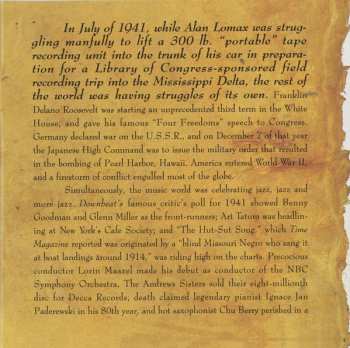 In July of 1941, while Alan Lomax was strug-
gling manfully to lift a 300 lb. “portable” tape
recording unit into the trunk of his car in prepara-
tion for a Library of Congress-sponsored field
recording trip into the Mississippi Delta, the rest of
the world was having struggles of its own. Franklin
Delano Roosevelt was starting an unprecedented third term in the White
House, and gave his famous “Four Freedoms” speech to Congress.
Germany declared war on the U.S.S.R., and on December 2 of that year
the Japanese High Command was to issue the military order that resulted
in the bombing of Pearl Harbor, Hawaii. America entered World War II,
and a firestorm of conflict engulfed most of the globe.
Simultaneously, the music world was celebrating jazz, jazz and
more jazz. Downbeat's famous critic's poll for 1941 showed Benny
Goodman and Glenn Miller as the front-runners; Art Tatum was headlin-
ing at New York's Cafe Society; and “The Hut-Sut Song,” which Time
Magazine reported was originated by a “blind Missouri Negro who sang it
at boat landings around 1914,” was riding high on the charts. Precocious
conductor Lorin Maazel made his debut as conductor of the NBC
Symphony Orchestra. The Andrews Sisters sold their eight-millionth
disc for Decca Records, death claimed legendary pianist Ignace Jan
Paderewski in his 80th year, and hot saxophonist Chu Berry perished in a